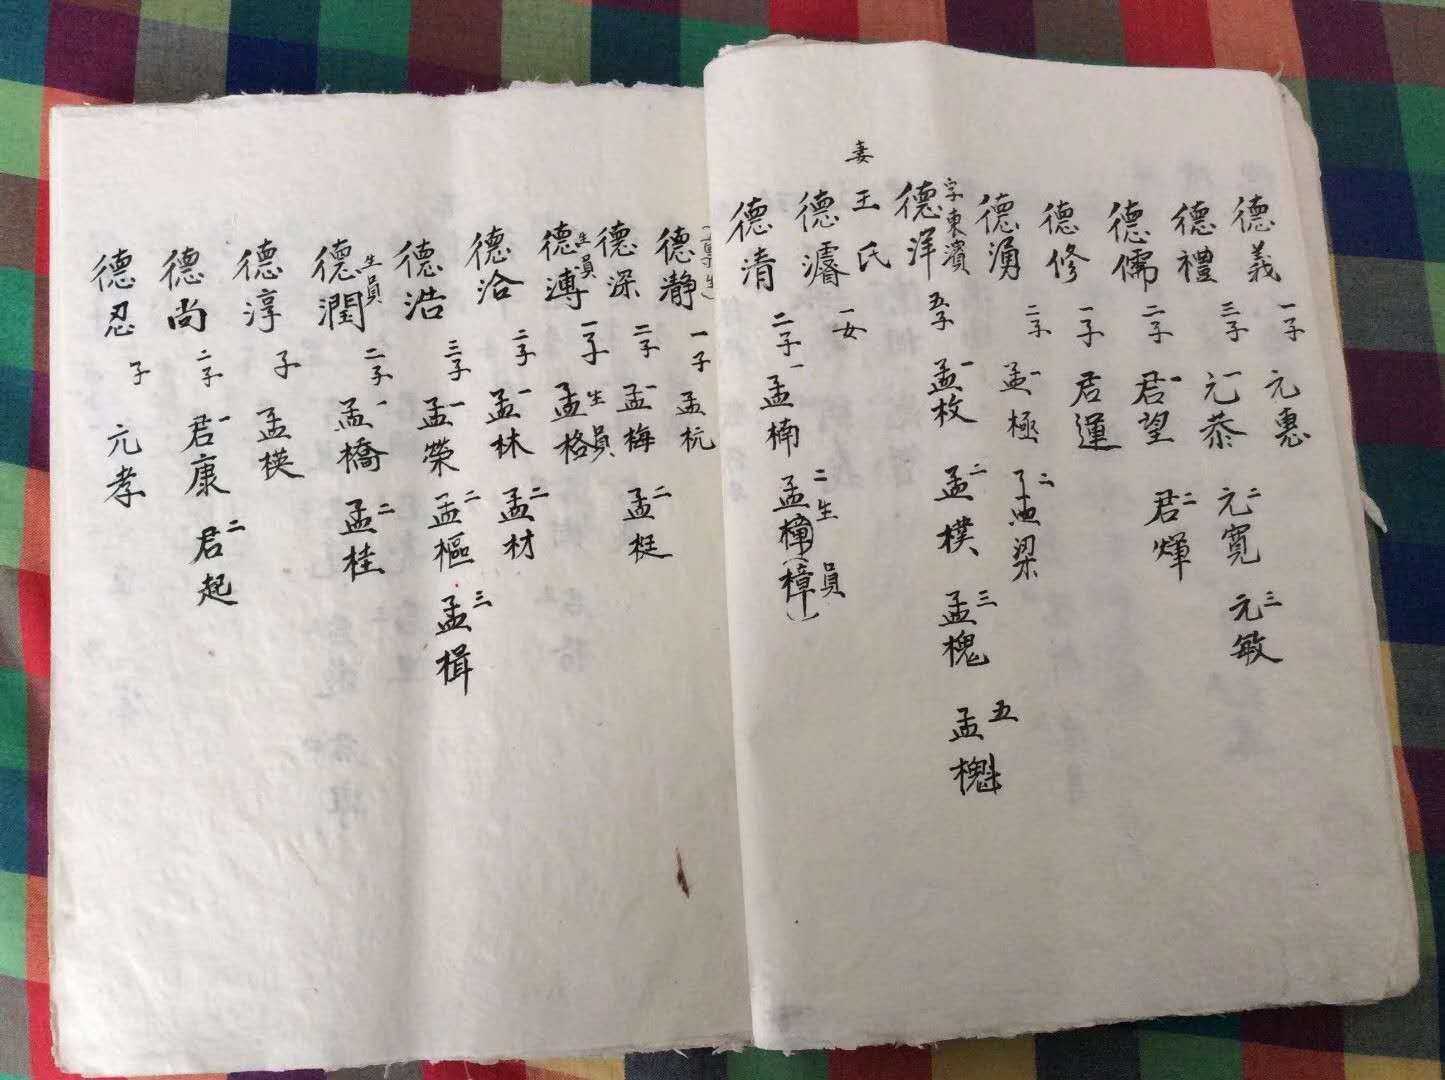 德義 一子 元惠
德禮 三子 一元恭 二元寬 三元敏
德儒 二子 一君望 二君煇
德修 一子 君運
德湧 二子 一孟極 二孟梁
德洋 字東濱 五子 一孟枚 二孟樸 三孟槐 五孟魁
妻王氏
德濬 一女
德清 二子 一孟楠 二生員 孟樟(樟)
德瀞 一子 孟杭
德深 二子 一孟梅 二孟梃
德溥 生員 一子 孟格 生員
德洽 二子 一孟林 二孟材
德浩 三子 一孟榮 二孟樞 三孟楫
德潤 生員 二子 一孟橋 二孟桂
德淳 子 孟楧
德尚 二子 一君康 二君起
德忍 子 元孝